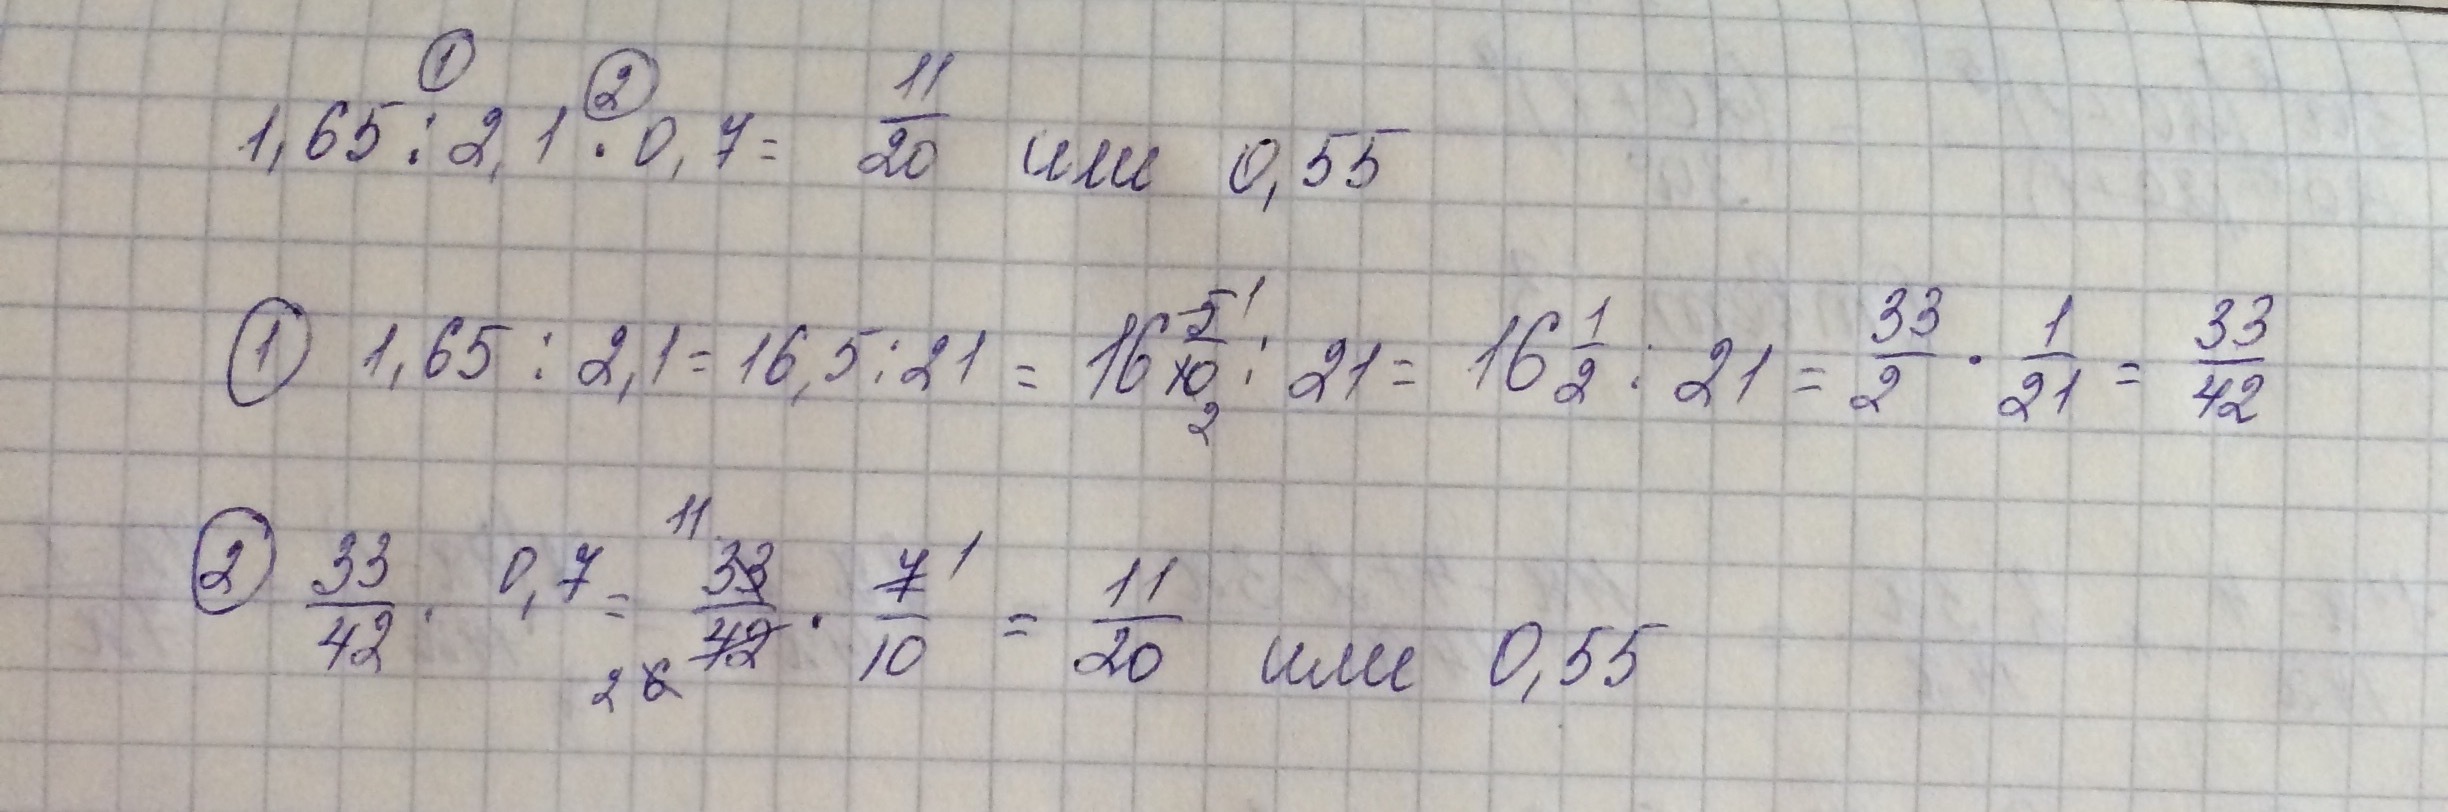 1,65 : 2,1 · 0,7 = 11/20 или 0,55
① ②
① 1,65 : 2,1 = 16,5 : 21 = 16 5/10 : 21 = 16 1/2 : 21 = 33/2 · 1/21 = 33/42
1 2
② 33/42 · 0,7 = 33/42 · 7/10 = 11/20 или 0,55
11 1 2 6